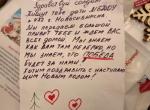 Здравствуй солдат!
Пишут тебе дети МБДОУ
г. Новосибирска
Мы передаём большой
привет тебе и ждём вас
всех дома! Мы знаем
как вам там нелегко, но
мы знаем, что победа
будет за нами!
Хотим поздравить с наступаю-
щим Новым годом!